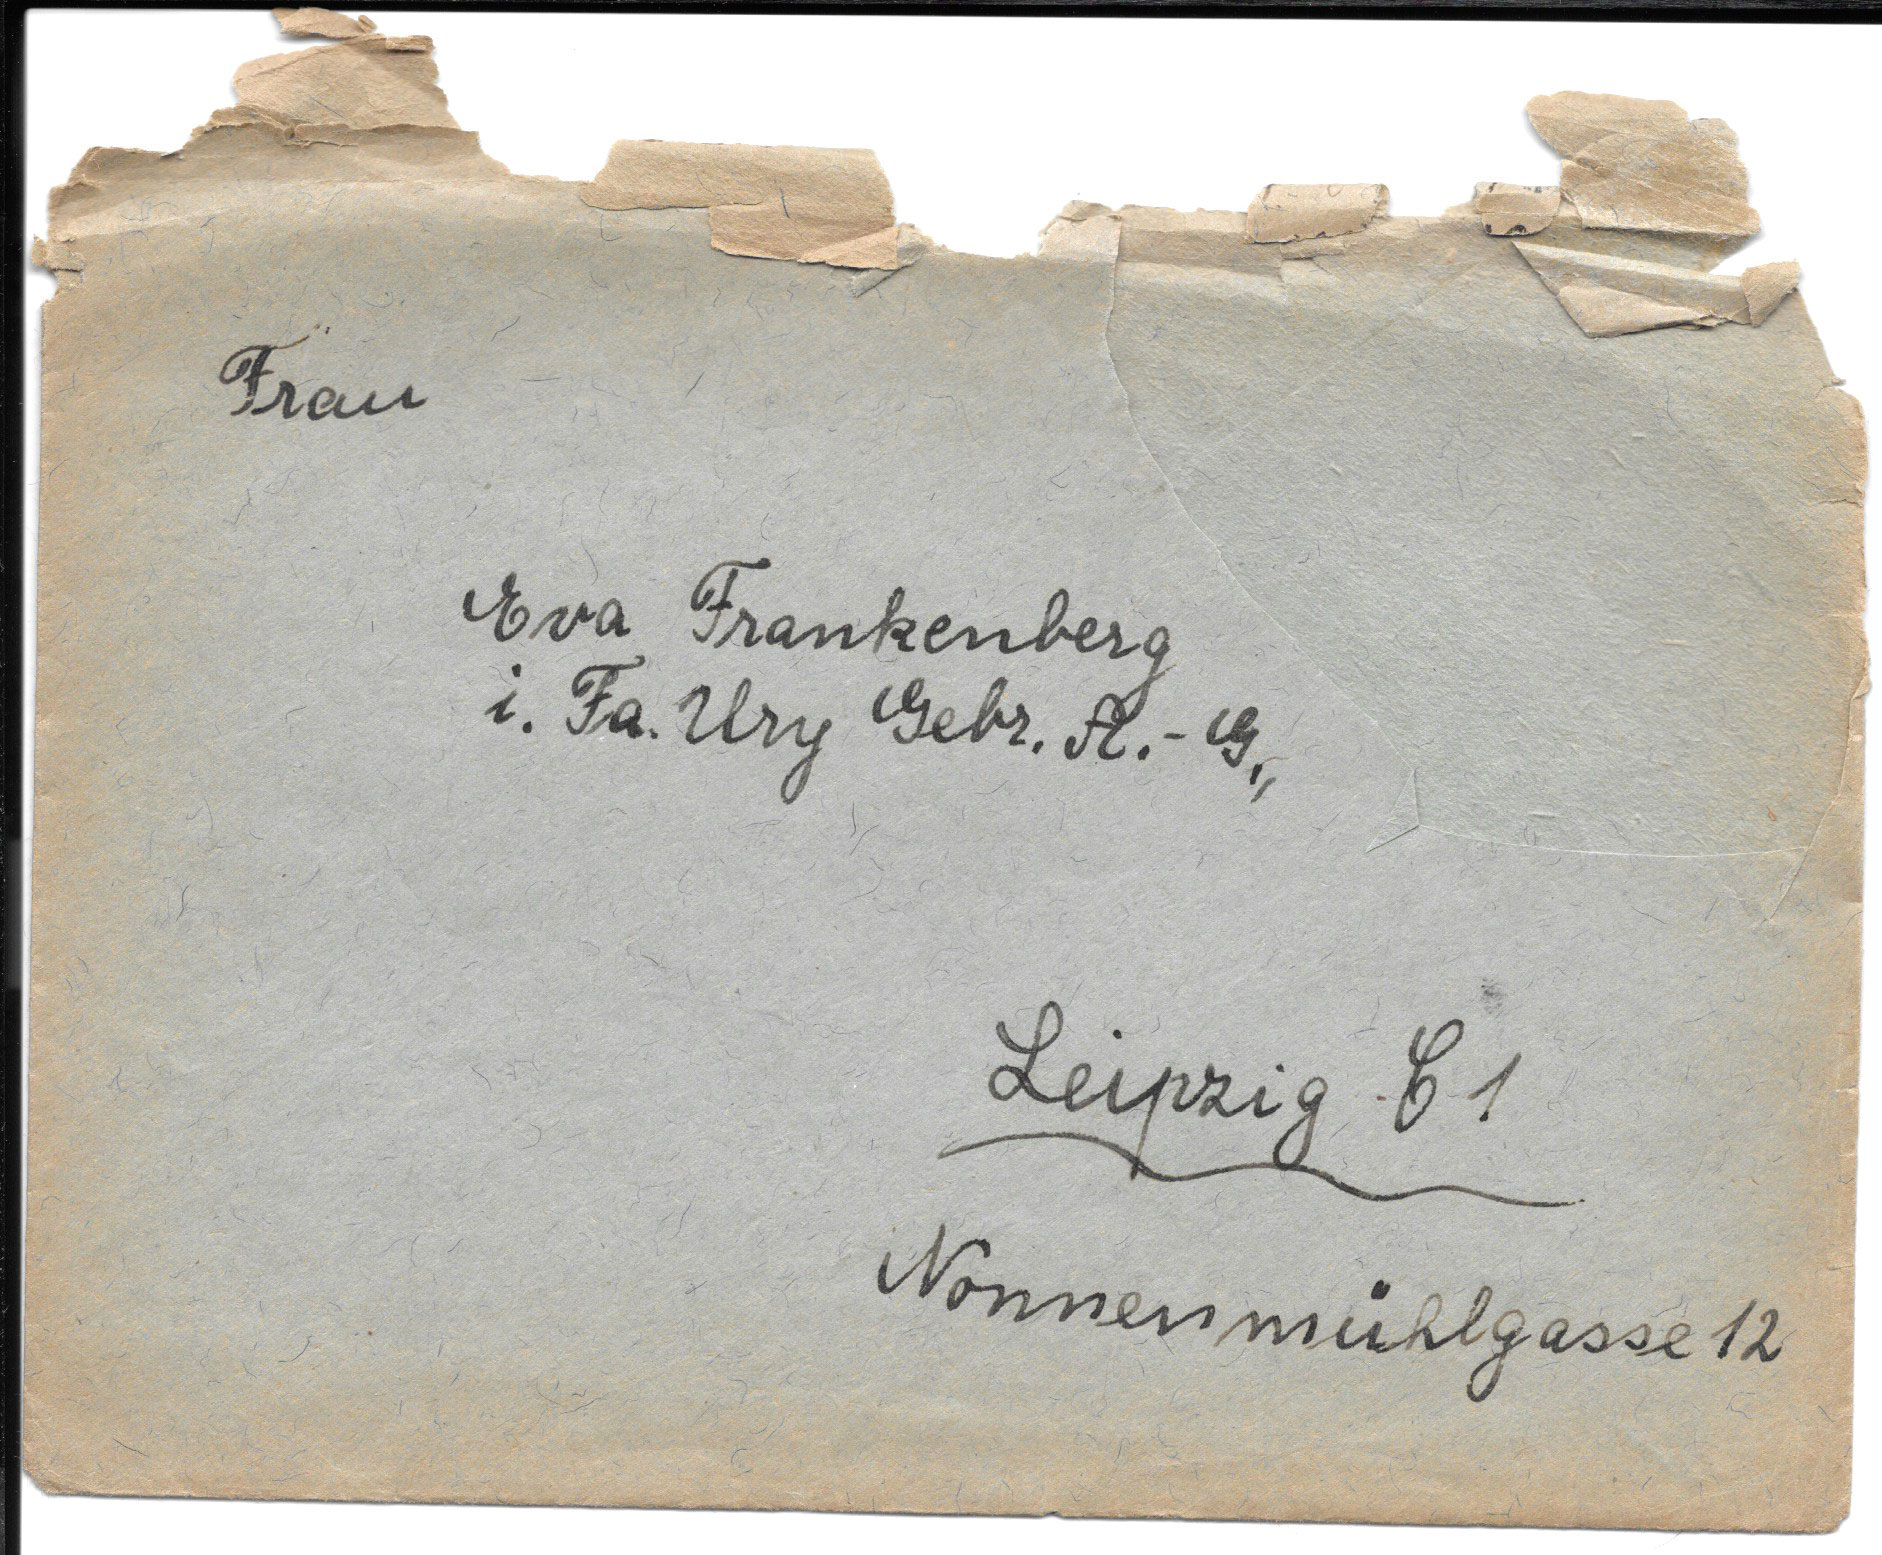 Frau
Eva Frankenberg
i. Fa. Ury Gebr. A.-G.,
Leipzig C 1
Nonnenmühlgasse 12